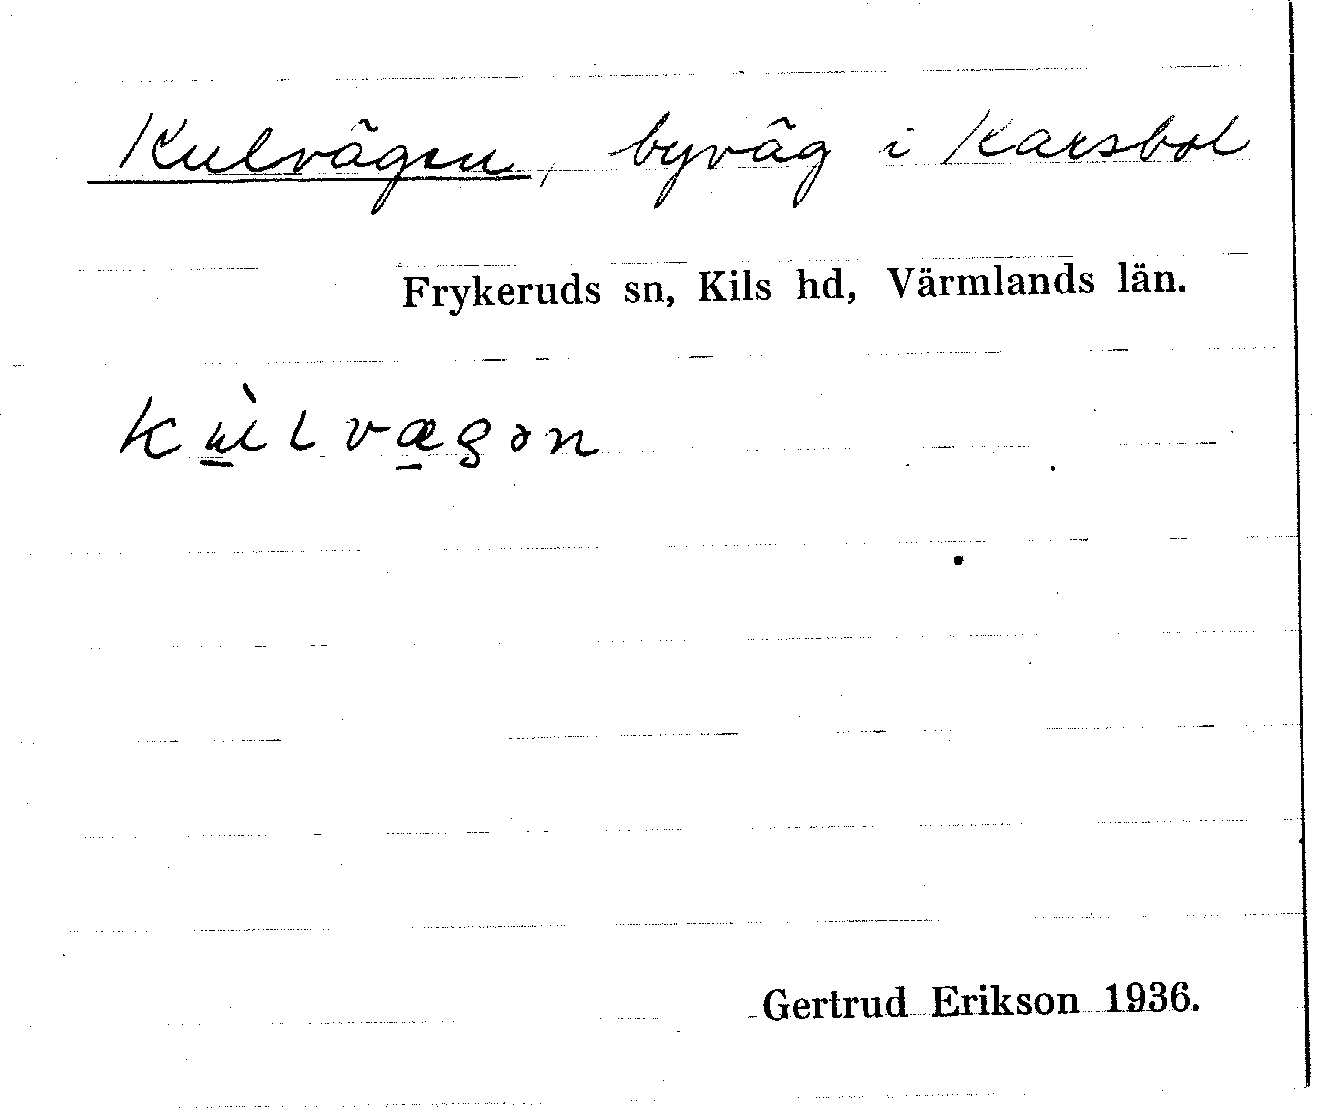 Kulvägen, byväg i Karsbol
Frykeruds sn, Kils hd, Värmlands län.
Gertrud Erikson 1936.